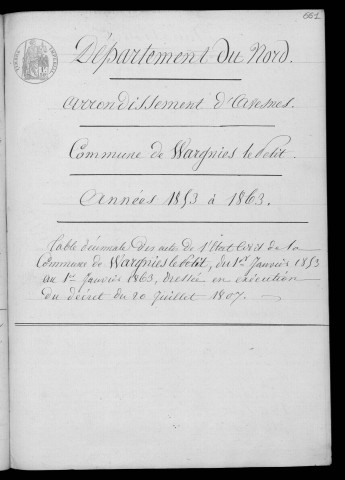 661
Département du Nord.
Arrondissement d'Avesnes.
Commune de Wargnies le petit.
Années 1853 à 1863.
Table décennale des actes de l'Etat Civil de la
Commune de Wargnies le Petit, du 1er Janvier 1853
au 1er Janvier 1863, dressée en exécution
du décret du 20 Juillet 1807.